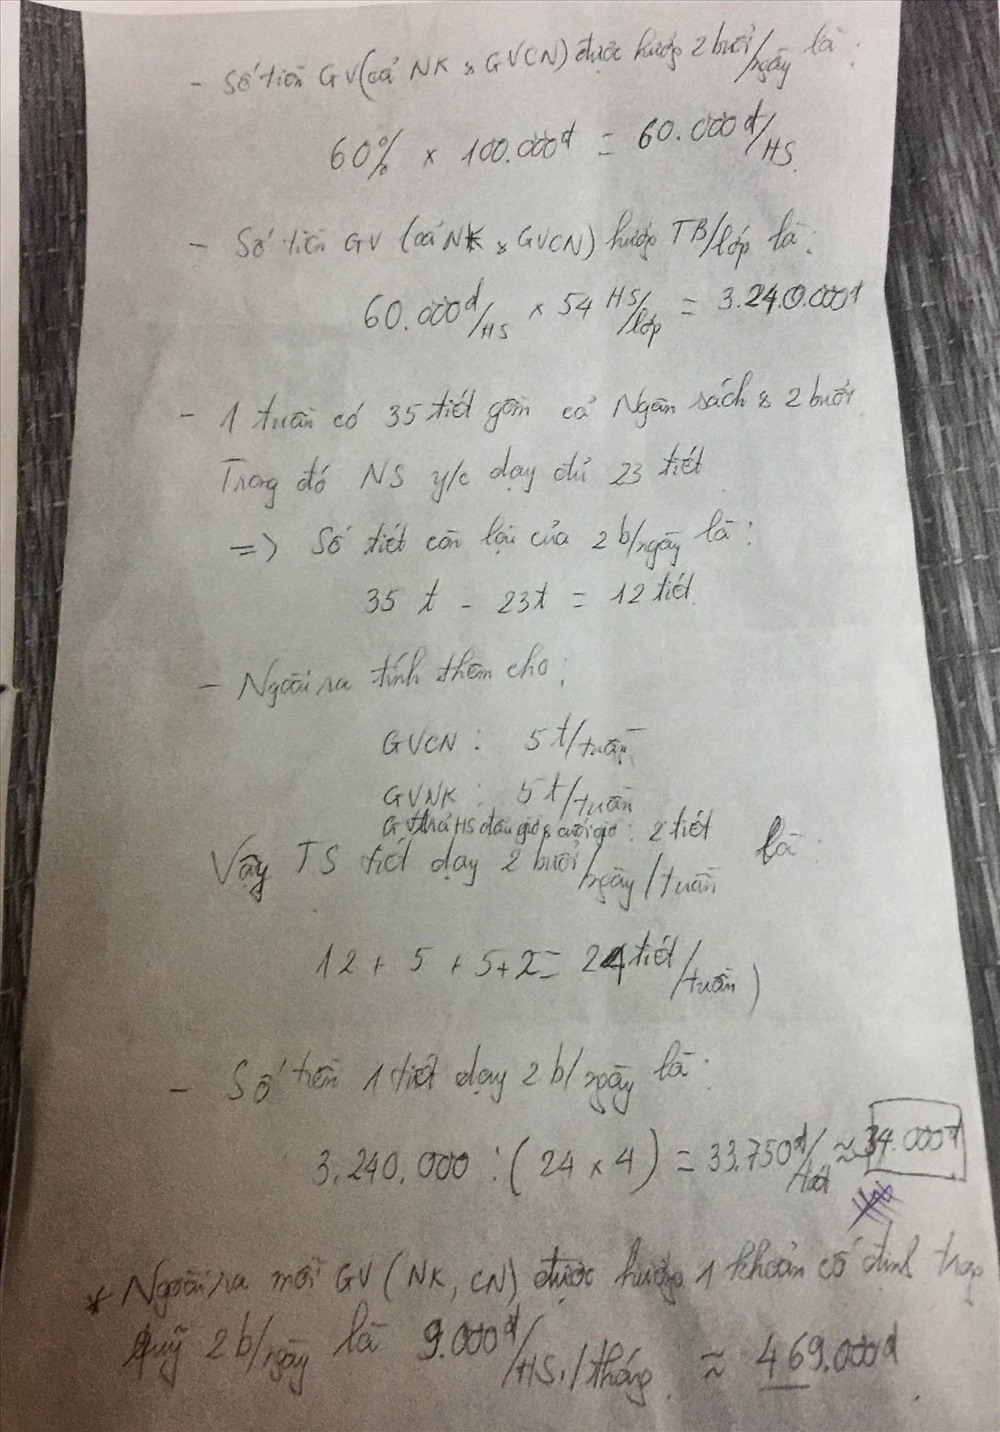 - Số tiền GV (cả NK & GVCN) được hưởng 2 buổi/ngày là:
60% x 100.000đ = 60.000đ/HS.
- Số tiền GV (cả NK & GVCN) hưởng TB/lớp là:
60.000đ/HS x 54 HS/lớp = 3.240.000đ
- 1 tuần có 35 tiết gồm cả Ngân sách & 2 buổi
Trong đó NS y/c dạy đủ 23 tiết
=> Số tiết còn lại của 2 b/ngày là:
35 t - 23t = 12 tiết.
- Ngoài ra tính thêm cho:
GVCN: 5 t/tuần
GVNK: 5 t/tuần
GV trả HS đầu giờ & cuối giờ: 2 tiết
Vậy TS tiết dạy 2 buổi/ngày/tuần là:
12 + 5 + 5+2 = 24 tiết/tuần)
- Số tiền 1 tiết dạy 2 b/ngày là:
3.240.000 : (24 x 4) = 33.750đ/tiết ≈ 34.000đ
* Ngoài ra mỗi GV (NK, CN) được hưởng 1 khoản cố định trong
quỹ 2 b/ngày là 9.000đ/HS./tháng. ≈ 469.000đ